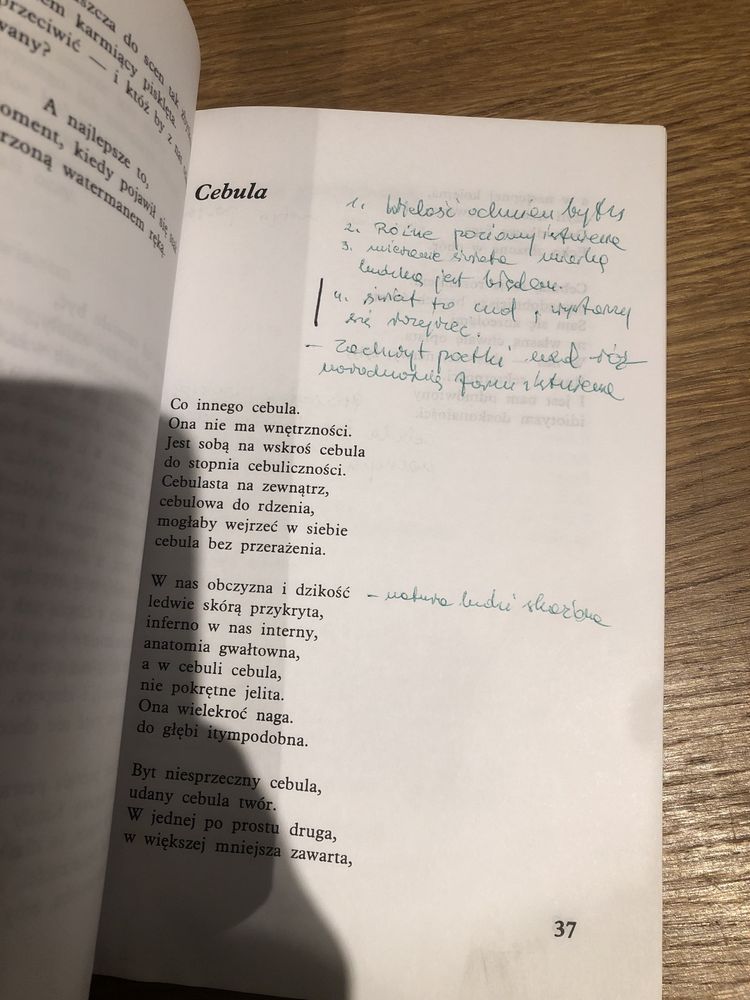 szcza do scen tak
em karmiący pisklęta.
przeciwić — i któż by z nas
wany?
A najlepsze to,
oment, kiedy pojawił się
rzoną watermanem ręką.
Cebula
1. Wielość odmian bytu
2. Różne poziomy istnienia
3. mierzenie świata miarką
ludzką jest błędem.
4. świat to cud, wystarczy
się rozejrzeć.
- Zachwyt poetki nad róż
norodnością form istnienia
Co innego cebula.
Ona nie ma wnętrzności.
Jest sobą na wskroś cebula
do stopnia cebuliczności.
Cebulasta na zewnątrz,
cebulowa do rdzenia,
mogłaby wejrzeć w siebie
cebula bez przerażenia.
W nas obczyzna i dzikość
- natura ludzi skażona
ledwie skórą przykryta,
inferno w nas interny,
anatomia gwałtowna,
a w cebuli cebula,
nie pokrętne jelita.
Ona wielekroć naga.
do głębi itympodobna.
Byt niesprzeczny cebula,
udany cebula twór.
W jednej po prostu druga,
w większej mniejsza zawarta,
37